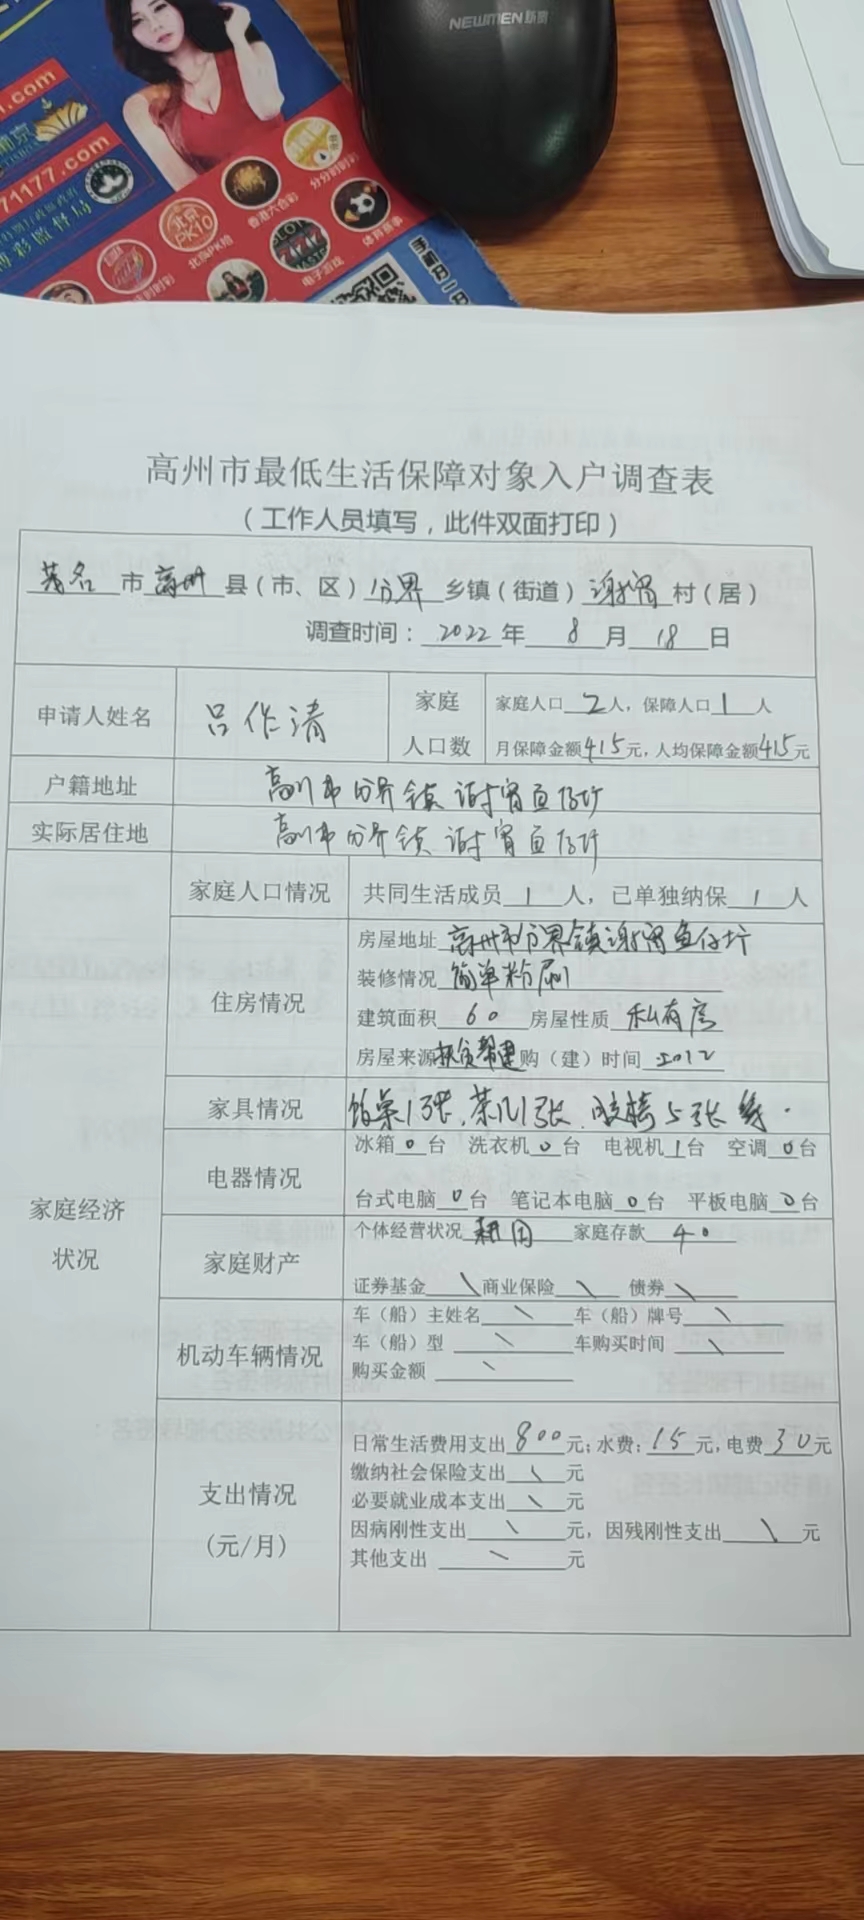 NEWMEN新贵
.com
71177.com
博彩监督局
北京
PK10
北京PK拾
香港六合彩
分分时时彩
SLOT
777
电子游戏
体育赛事
高州市最低生活保障对象入户调查表
(工作人员填写，此件双面打印)
茂名市高州县(市、区)分界乡镇(街道)谢胃村(居)
调查时间：2022年8月18日
申请人姓名 吕作清 家庭人口数 家庭人口2人，保障人口1人
月保障金额415元，人均保障金额415元
户籍地址 高州市分界镇谢胃鱼仔圩
实际居住地 高州市分界镇谢胃鱼仔圩
家庭经济状况
家庭人口情况 共同生活成员1人，已单独纳保1人
住房情况 房屋地址高州市分界镇谢胃鱼仔圩
装修情况简单粉刷
建筑面积60 房屋性质私有房
房屋来源扶贫帮建购(建)时间2012
家具情况 饭桌1张，茶几1张，胶椅5张等.
电器情况 冰箱0台 洗衣机0台 电视机1台 空调0台
台式电脑0台 笔记本电脑0台 平板电脑0台
家庭财产 个体经营状况耕田 家庭存款40
证券基金\商业保险\ 债券\
机动车辆情况 车(船)主姓名\ 车(船)牌号\
车(船)型\ 车购买时间\
购买金额\
支出情况
(元/月)
日常生活费用支出800元；水费：15元，电费30元
缴纳社会保险支出\元
必要就业成本支出\元
因病刚性支出\元，因残刚性支出\元
其他支出\元